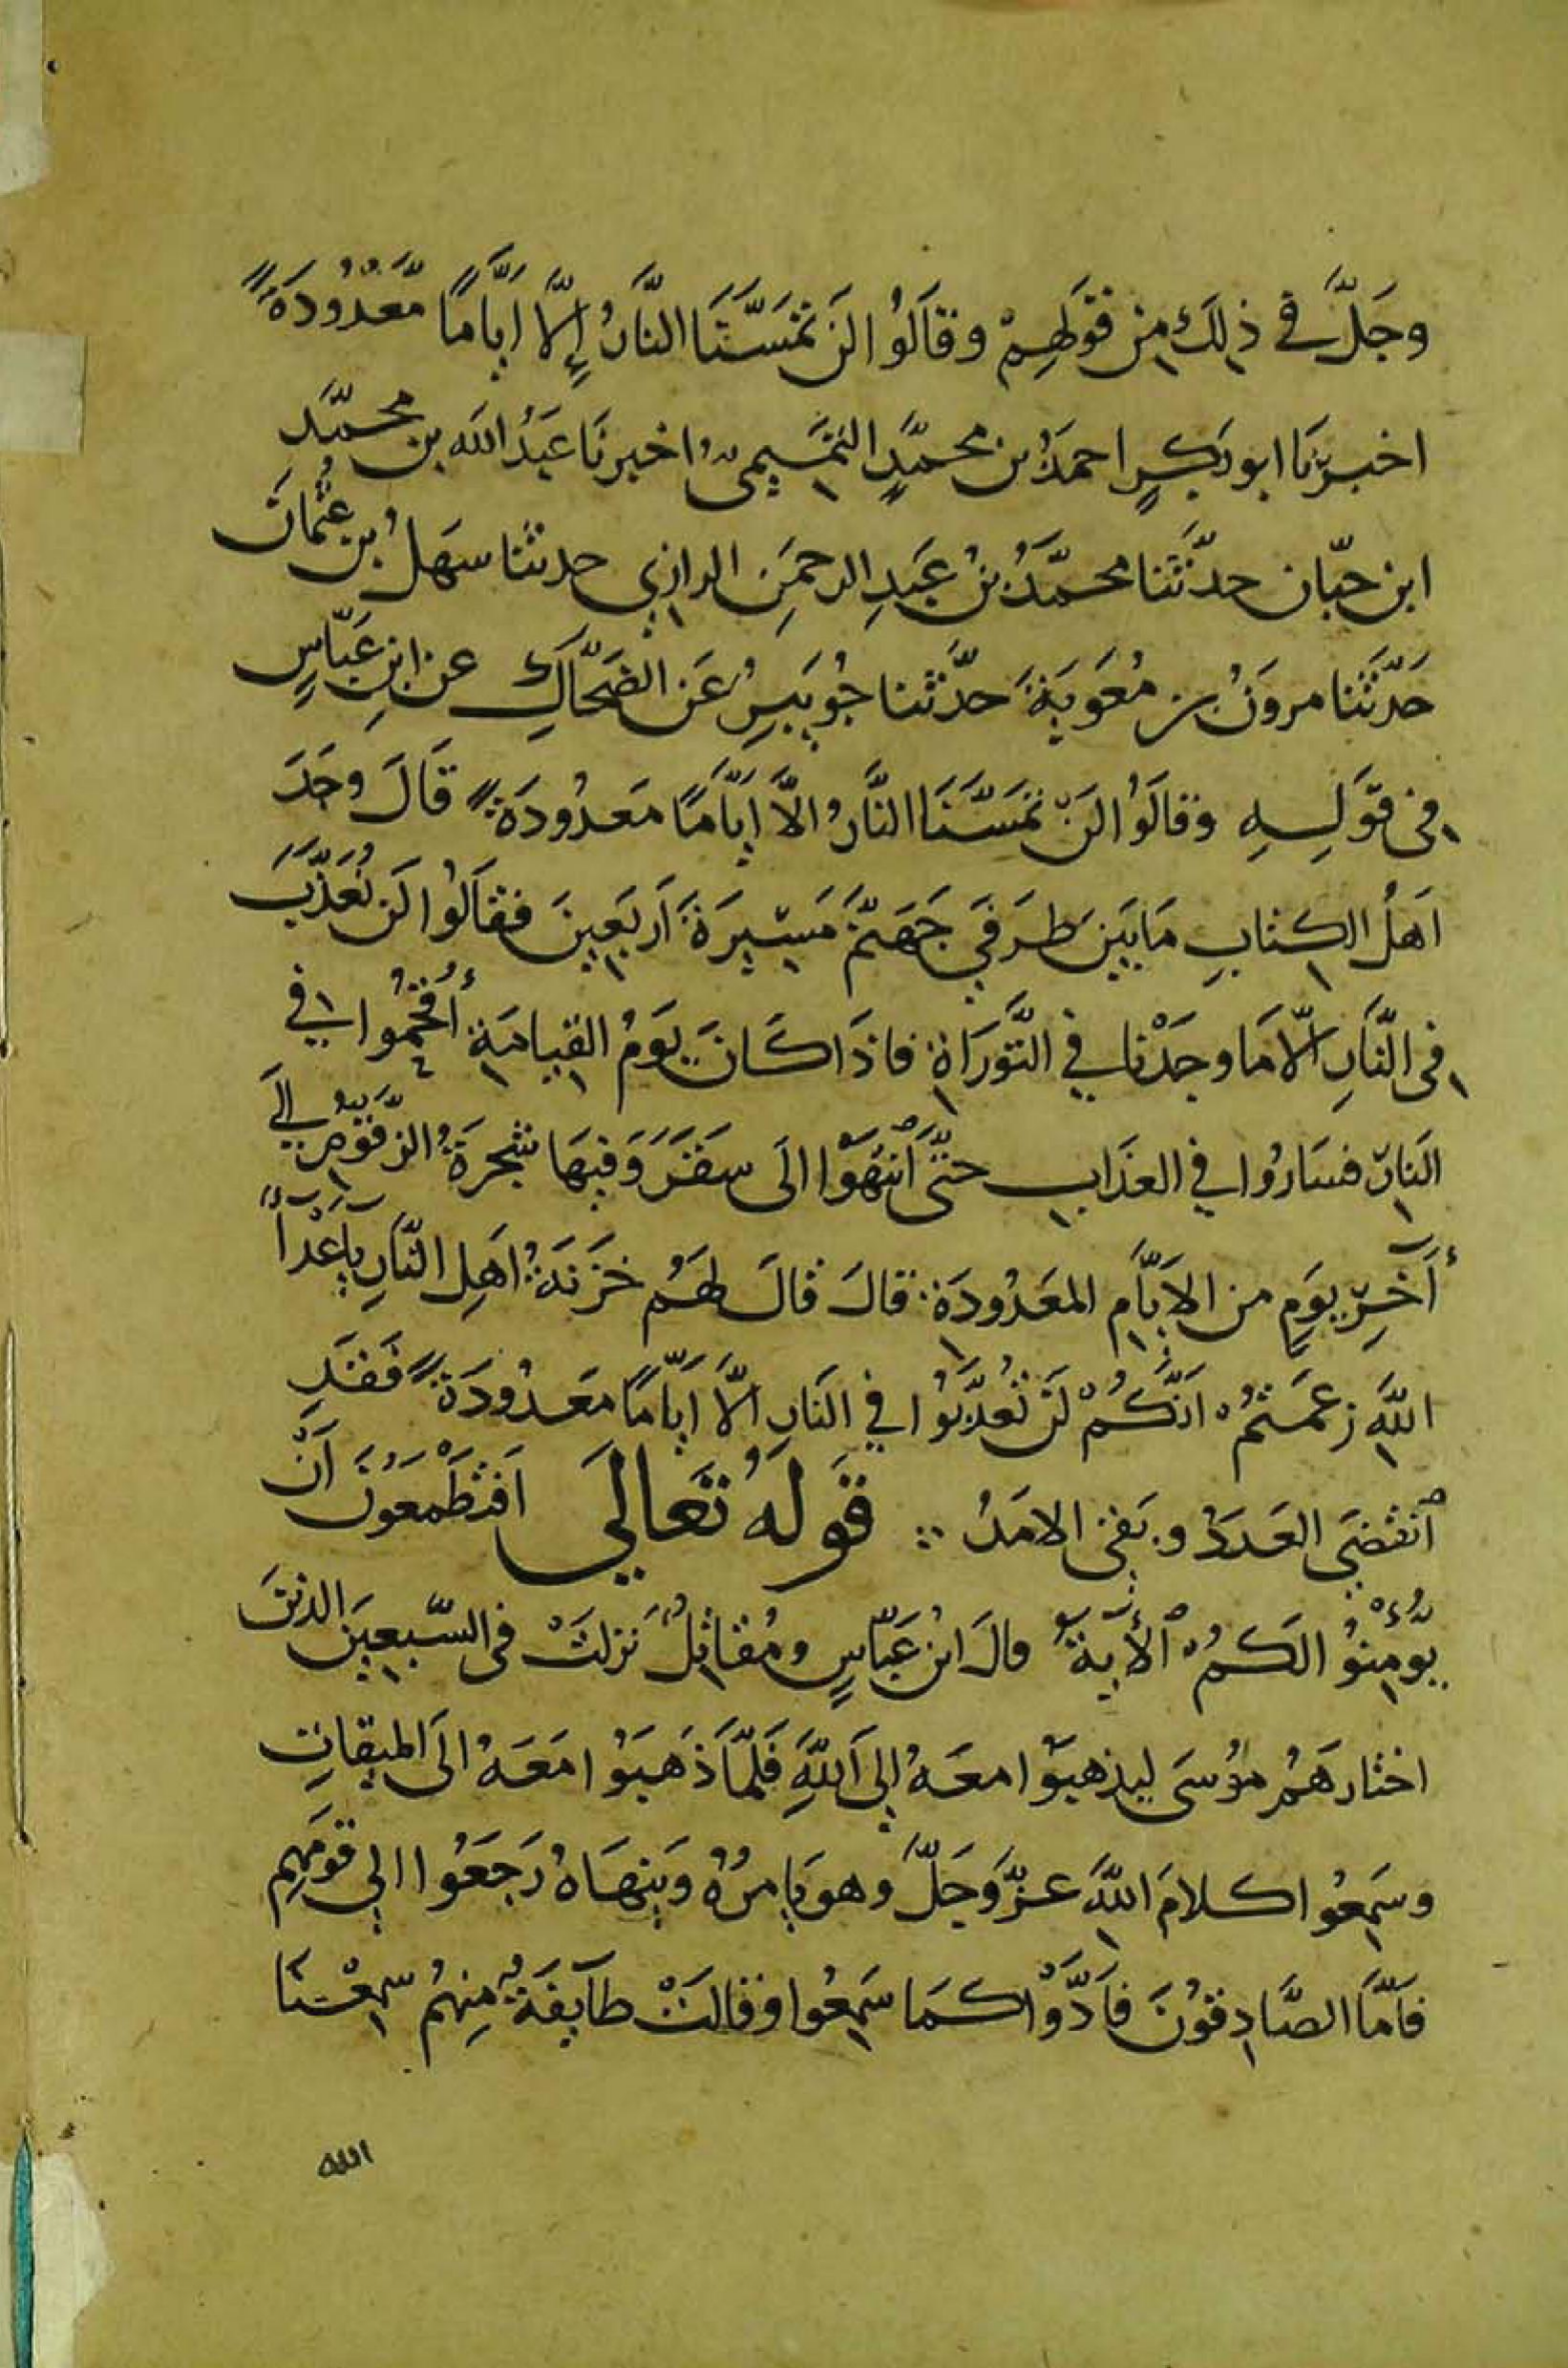 وَجَلَّ فِي ذٰلِكَ مِن قَوْلِهِمْ وَقَالُوا لَن تَمَسَّنَا النَّارُ إِلَّا أَيَّامًا مَّعْدُودَةً
اخبرَنا ابو بَكرٍ احمدُ بن محمّدٍ التَّمِيمِيُّ اخبرنَا عَبْدُ الله بن محمّد
ابن حبّان حدّثَنا محمّدُ بْنُ عَبدِ الرحمَنِ الرازي حدثنا سَهْلُ بن عُثْمانَ
حَدّثَنا مروَنُ بن مُعَوِيَةَ حدّثنا جُوَيبِرُ عَن الضَحَّاكِ عن ابنِ عَبّاسٍ
فِي قَوْلِهِ وَقالُوا لَن تَمَسَّنَا النَّارُ الَّا ايَّامًا مَعْدُودَةً قَالَ وجَدَ
اَهْلُ الكِتابِ مَا بَيْنَ طرَفَي جَهَنَّمَ مَسِيرَةَ اَرْبَعِينَ فقَالُوا لَن نُعَذَّبَ
فِي النَّارِ الَّا مَا وجَدْنا فِي التَّوْرَاةِ فاذَا كَانَ يَوْمُ القِيامَةِ أُقْحِمُوا فِي
النَارِ فسَارُوا فِي العَذَابِ حتَّى ٱنْتَهَوْا الَى سَقَرَ وَفيهَا شَجَرَةُ الزَّقُّومِ إلَي
أٓخِرِ يَومٍ من الايَّامِ المَعْدُودَةِ قالَ قالَ لهُمْ خَزَنَةُ اَهْلِ النَّارِ يٓا عْدٓأَ
اللَّهِ زعَمْتُمْ انَّكُمْ لَنْ تُعَذَّبُوا فِي النَارِ الَّا ايَّامًا مَعْدُودَةً فَقَدِ
ٱنقَضَى العَدَدُ وبَقِىَ الامَدُ قَوْلهُ تَعَالَي اَفَتَطْمَعُونَ اَنْ
يُّؤْمِنُوْا لَكُمُ ٱلأٓيةَ قالَ ابْن عَبّاسٍ وَمُقاتِلُ نَزلَتْ فِى السَّبعِينَ الذينَ
اختارهَمْ مُوْسَى ليذهبُوا معَهُ إِلى اَللَّهِ فَلمَّا ذَهَبُوْا مَعَهُ الَى الميقاتِ
وسَمِعُوا كلامَ اللَّهِ عزَّ وَجَلَّ وهو يَامرُهُ وَيَنهَاهُ رَجَعُوا الِي قَوْمِهِم
فاَمَّا الصَّادِقُونَ فاَدَّوْا كمَا سَمِعُوا وقالَتْ طآئِفَةٌ مِنهُمْ سَمِعْنَا
الله